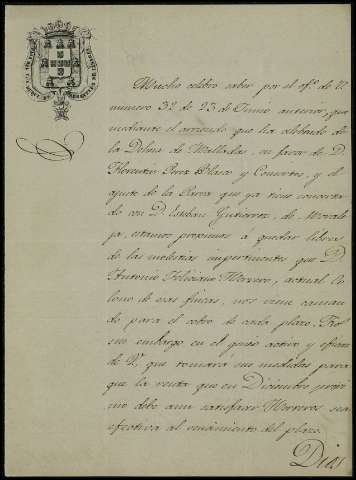 Mucho celebro saber por el of.º de V.
número 32 de 23 de Junio anterior, que
mediante el arriendo que ha
de la Dehesa de Malladas, en favor de D.
Florencio Perez Blasco y Consortes, y el
ajuste de la Parra que ya tiene concerta-
do con D. Esteban Gutierrez, de Moraleja
ja, estamos proximos á quedar libres
de las molestias impertinentes que D.
Antonio Feliciano Herrero, actual Co-
lono de esas fincas, nos viene causan-
do para el cobro de cada plazo. Fio
sin embargo en el activo y eficaz
de V. que tomará sus medidas para
que la renta que en Diciembre próxi-
mo debe aun satisfacer Herreros sea
efectiva al vencimiento del plazo.
Dios